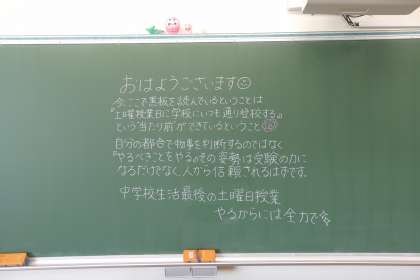 おはようございます
今、ここで黒板を読んでいるということは
『土曜授業日に学校にいつも通り登校する』
という当たり前ができているということ
自分の都合で物事を判断するのではなく
『やるべきことをやる』その姿勢は受験の力に
なるだけでなく、人から信頼されるはずです。
中学校生活最後の土曜日授業
やるからには全力で